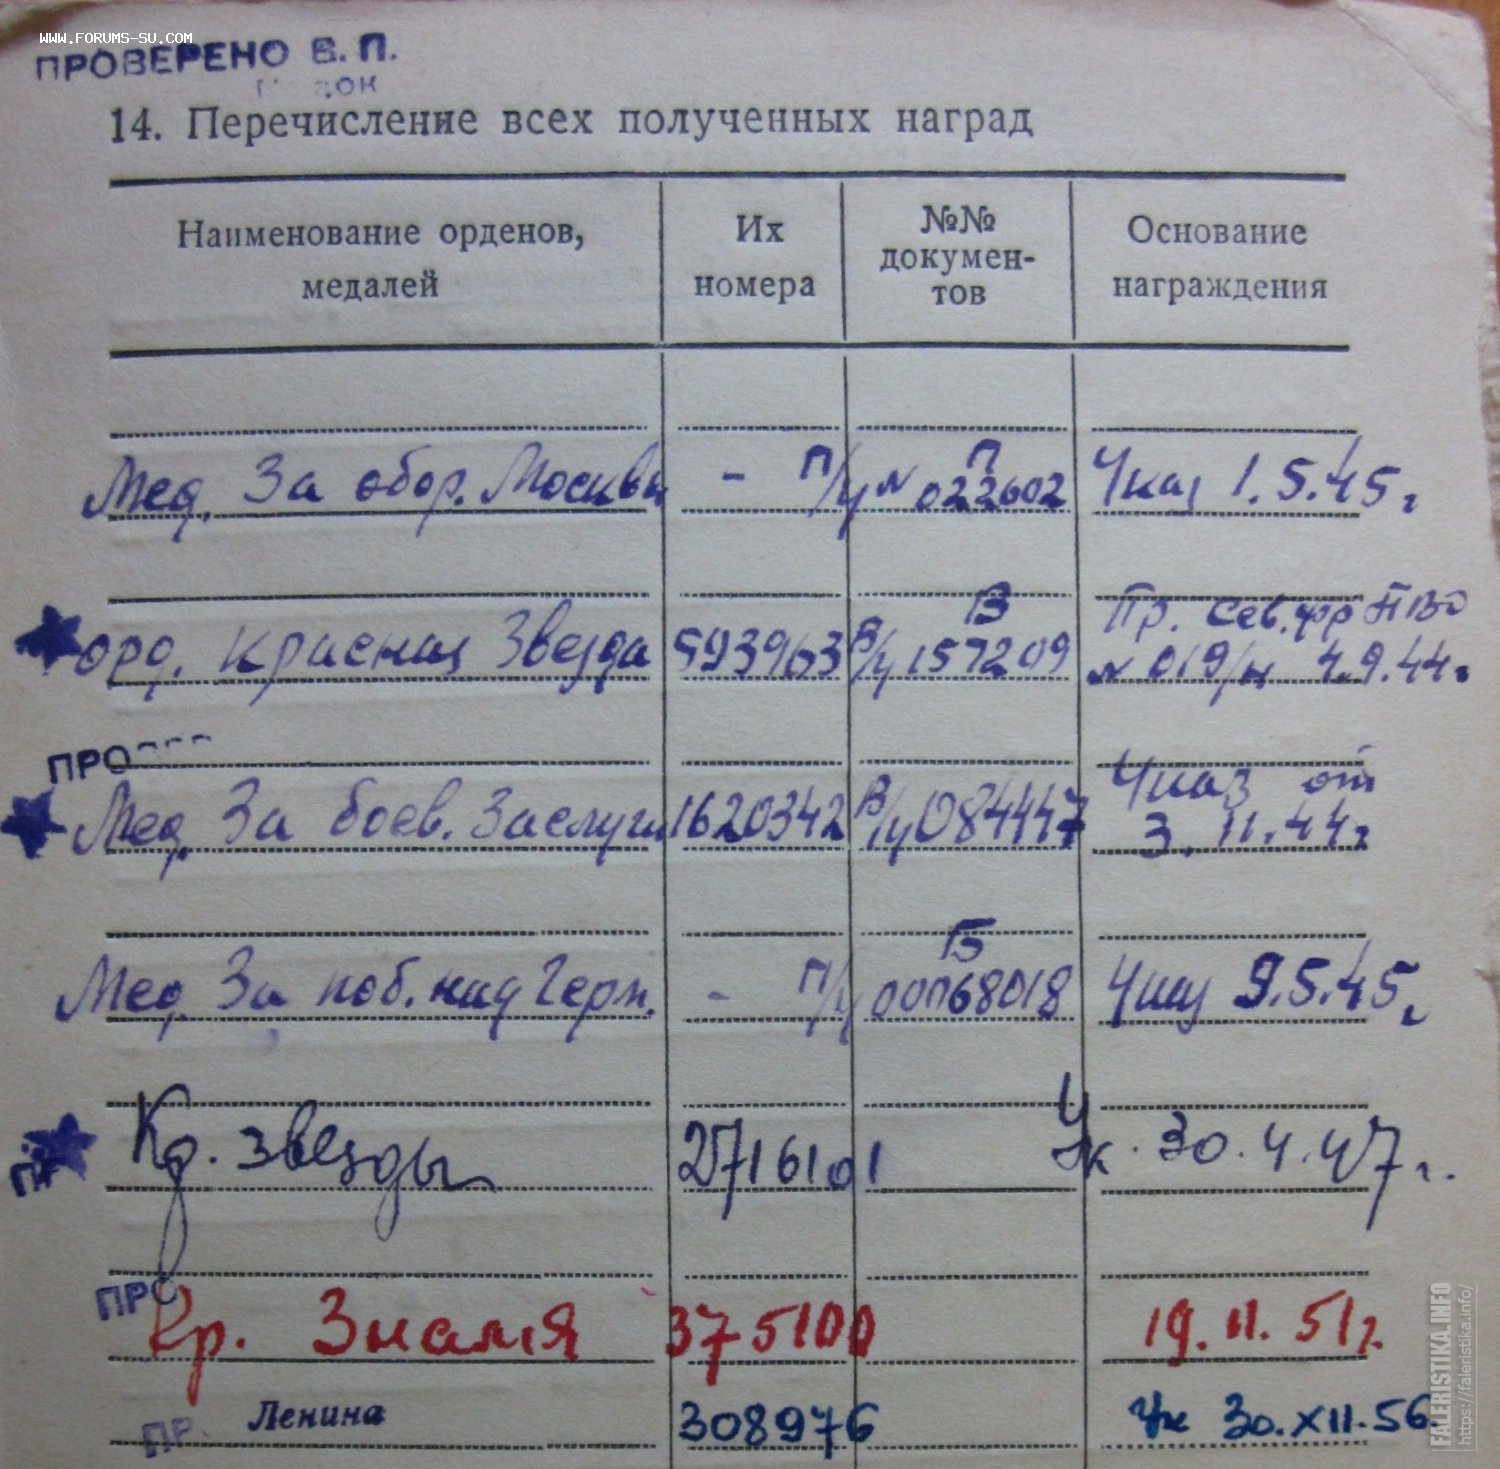 WWW.FORUMS-SU.COM
ПРОВЕРЕНО В. П.
14. Перечисление всех полученных наград
Наименование орденов, медалей Их номера №№ докумен-тов Основание награждения
Мед. За обор. Москвы - П/у № П 022602 Указ 1.5.45 г
Пр. Сев. фр ПВО
орд. Красная Звезда 593963 В/у В 157209 № 019/н 4.9.44г.
ПРО
Указ от
Мед. За боев. Заслуги 1620342 В/у 084447 3.11.44г
Мед. За поб. над Герм. - П/у Б 0068018 Указ 9.5.45 г
ПР Кр. звезды 2716101 Ук. 30.4.47 г.
ПРО
Кр. Знамя 375100 19.11.51г.
ПР. Ленина 308976 Ук 30.XII.56.
FALERISTIKA.INFO
https://faleristika.info/